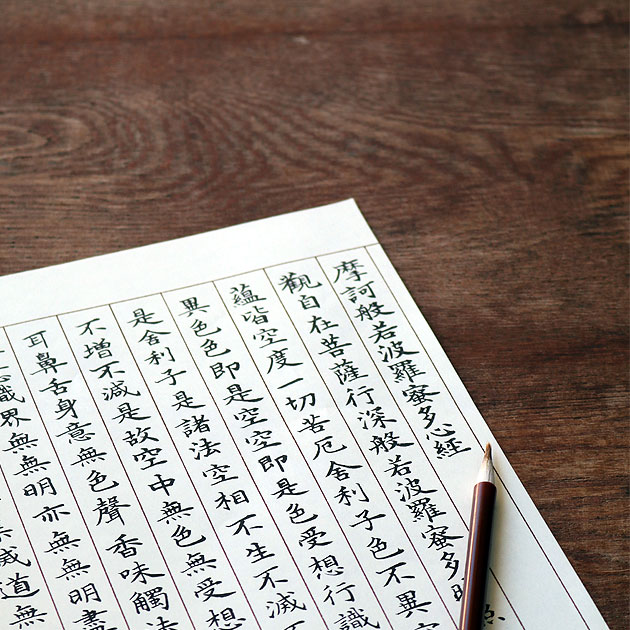 摩訶般若波羅蜜多心經
觀自在菩薩行深般若波羅蜜多
蘊皆空度一切苦厄舍利子色不異空
異色色即是空空即是色受想行識
是舍利子是諸法空相不生不滅
不增不減是故空中無色無受想
耳鼻舌身意無色聲香味觸法
意識界無無明亦無無明盡
滅道無